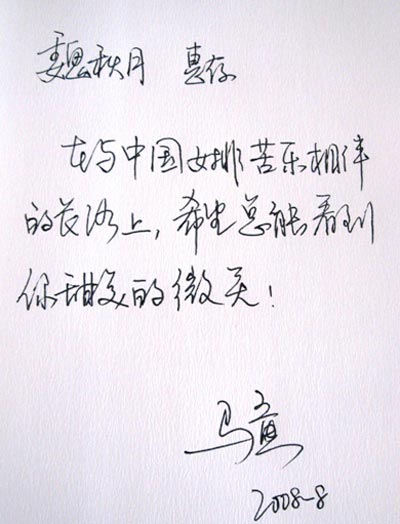 魏秋月 惠存
在与中国女排苦乐相伴
的长路上，希望总能看到
你甜美的微笑！
马寅
2008-8